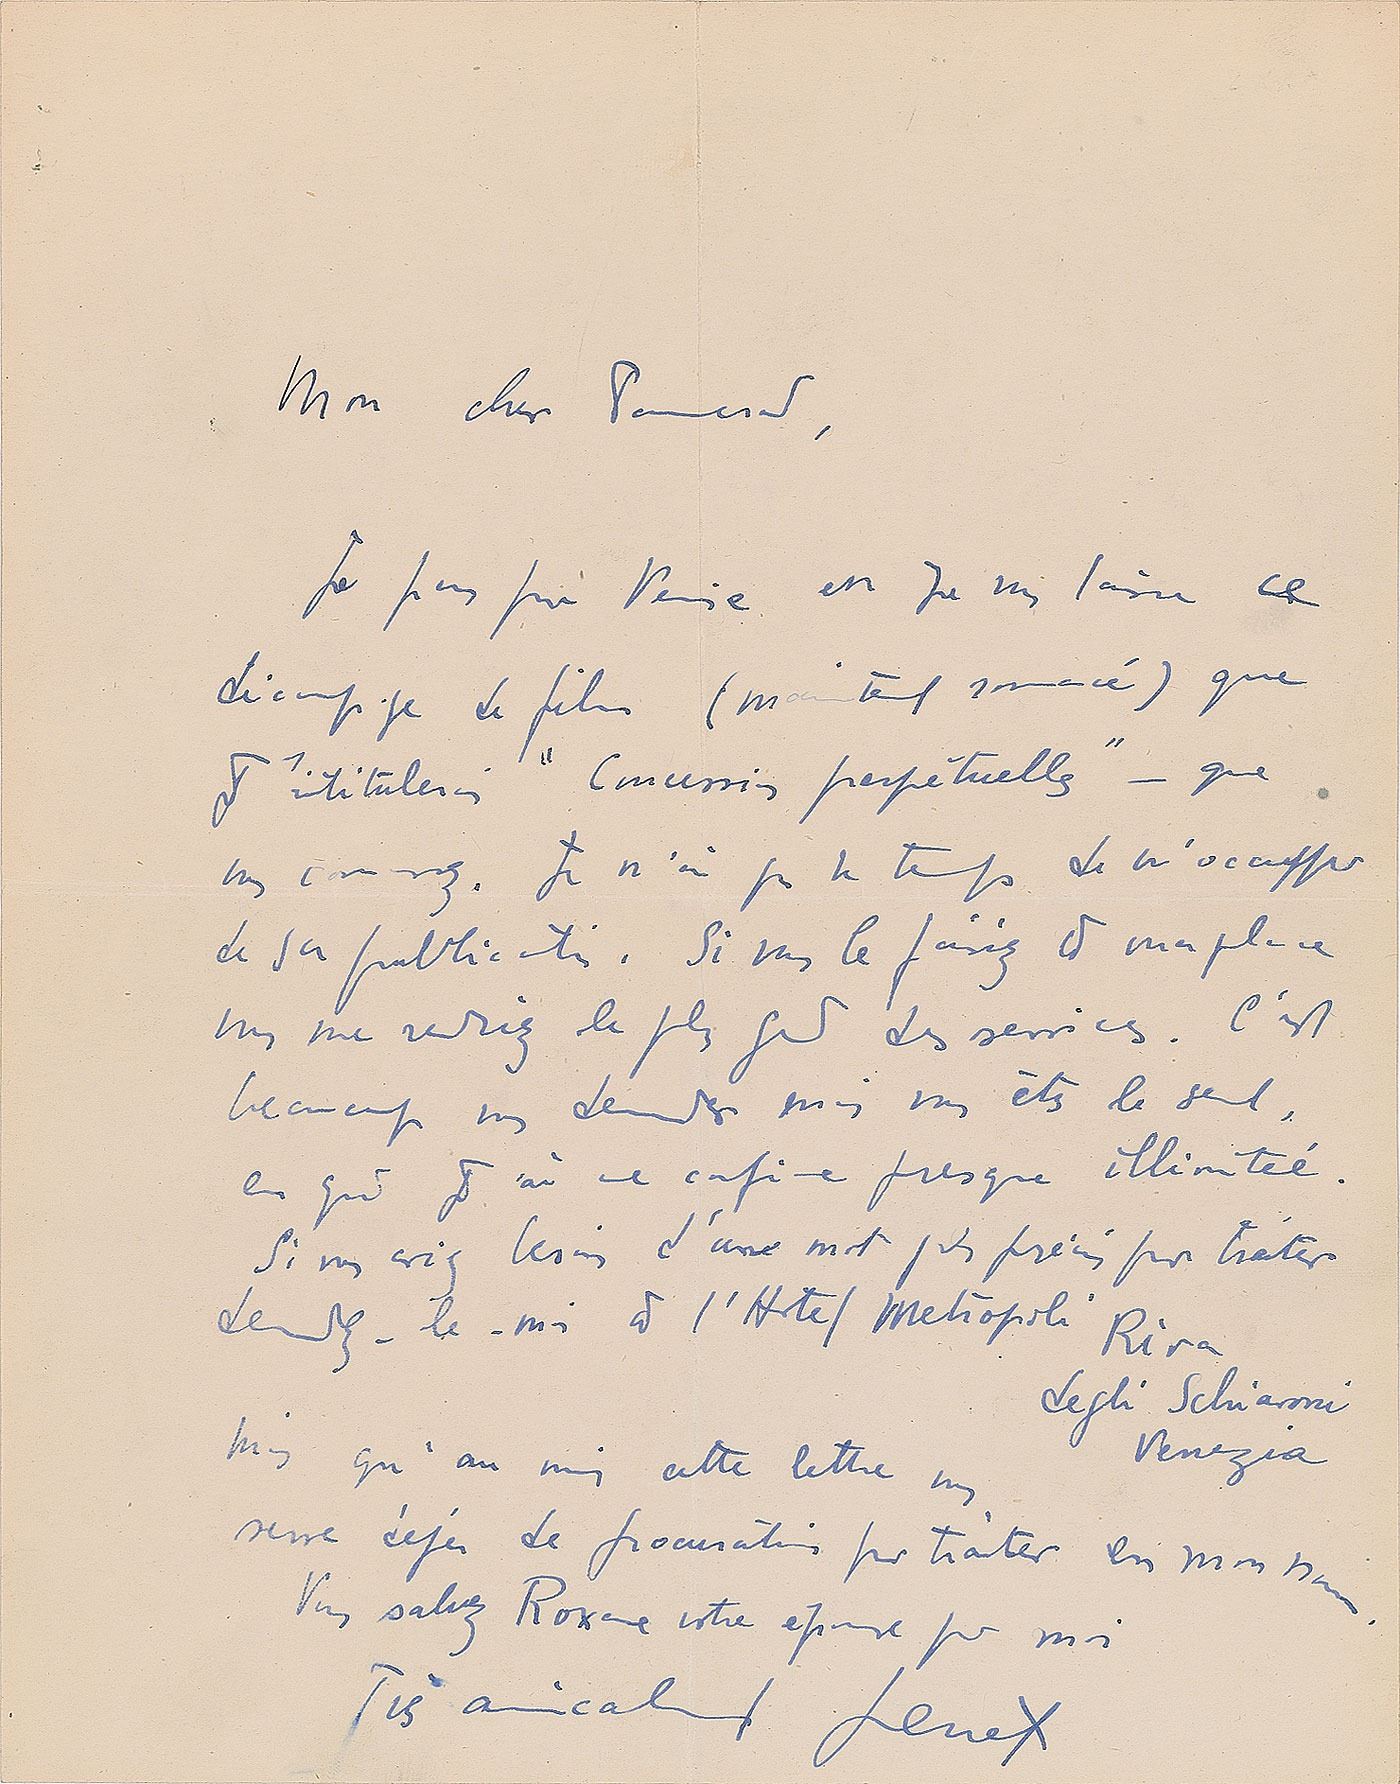 Mon cher Pommerand,
Je pars pour Venise et Je vous laisse ce
découpage de film (maintenant romancé) que
J'intitulerais "Concessions perpétuelles" — que
vous connaissez. Je n'ai pas le temps de m'occuper
de sa publication. Si vous le faisiez à ma place
vous me rendriez le plus grand des services. C'est
beaucoup vous demander mais vous êtes le seul,
en qui J'ai une confiance presque illimitée.
Si vous aviez besoin d'un mot plus précis pour traiter
demandez-le-moi à l'Hotel Metropoli Riva
degli Schiavoni
Venezia
Mais qu'au moins cette lettre vous
serve déjà de procuration pour traiter en mon nom.
Vous saluez Roxane votre épouse pour moi
Très amicalement Genet